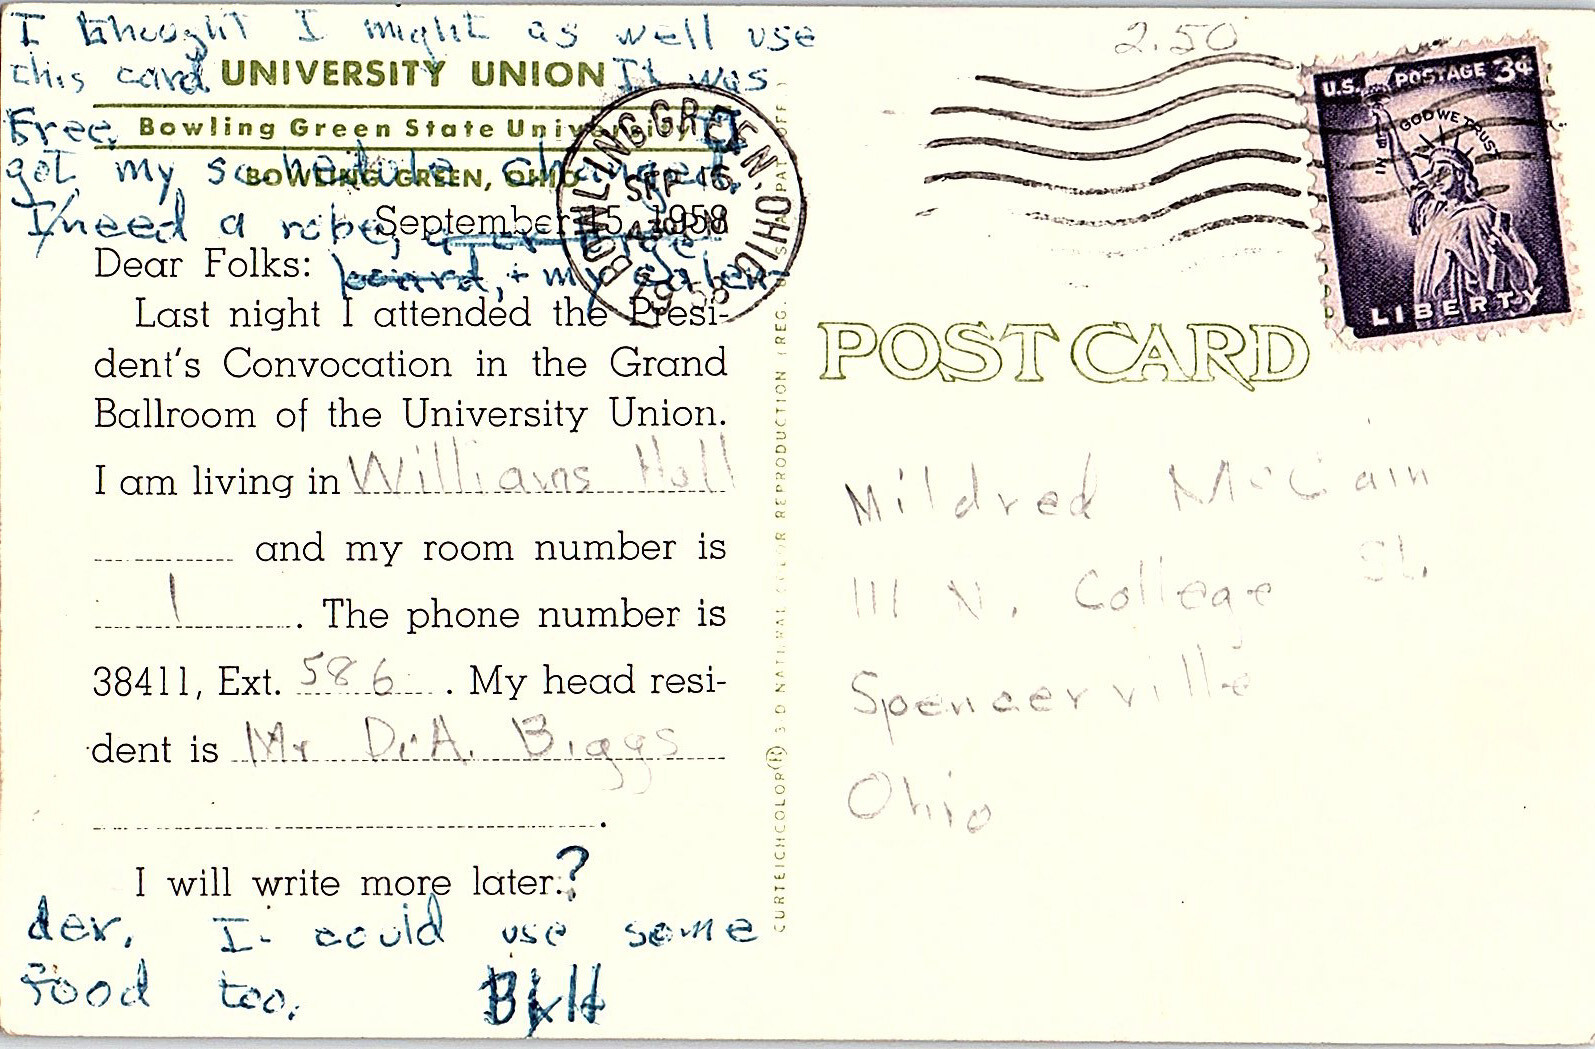 I thought I might as well use
this card. It was
UNIVERSITY UNION
Free. I
Bowling Green State University
got my schedule changed.
BOWLING GREEN, OHIO
I need a robe,
September 15, 1958
board, + my calen-
Dear Folks:
Last night I attended the Presi-
dent's Convocation in the Grand
Ballroom of the University Union.
I am living in Williams Hall
and my room number is
1. The phone number is
38411, Ext. 586. My head resi-
dent is Mr D.A. Biggs
I will write more later.?
der. I could use some
food too. Bill
BOWLING GREEN, OHIO
SEP 16
PM
1958
CURTEICHCOLOR® 3-D NATURAL COLOR REPRODUCTION (REG. U.S.A. PAT. OFF.)
2.50
U.S. POSTAGE 3¢
IN GOD WE TRUST
LIBERTY
POST CARD
Mildred McCain
111 N. College St.
Spencerville
Ohio